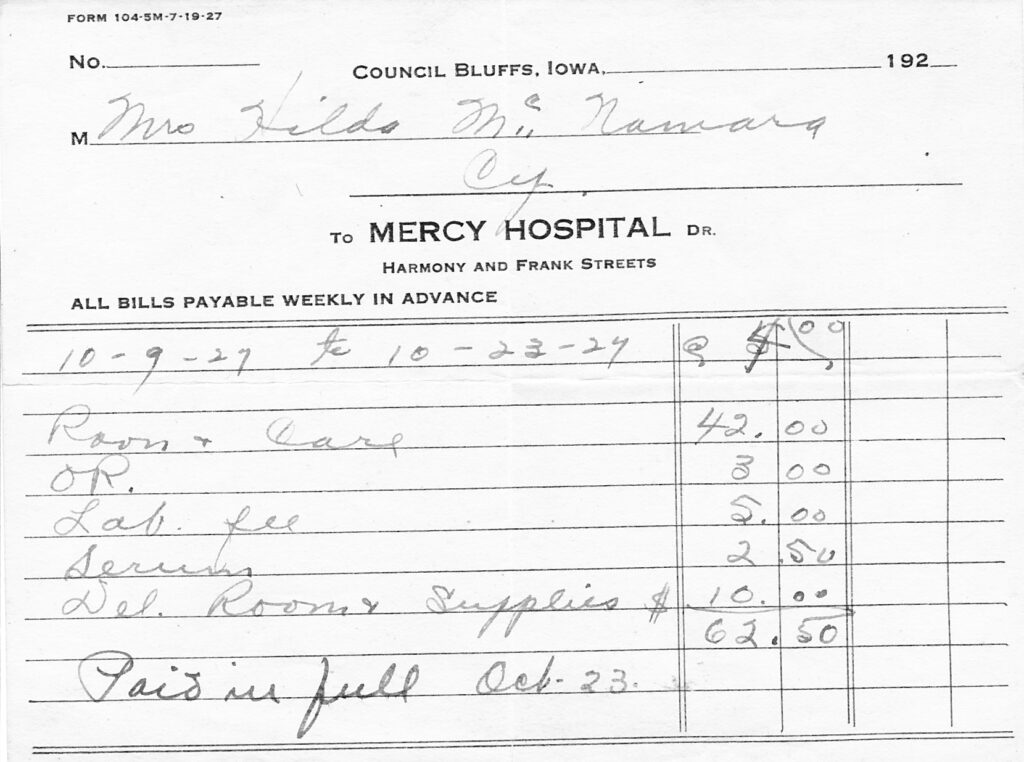 FORM 104-5M-7-19-27
No. COUNCIL BLUFFS, IOWA, 192
M Mrs Hilda Mc Namara
Cy
TO MERCY HOSPITAL DR.
HARMONY AND FRANK STREETS
ALL BILLS PAYABLE WEEKLY IN ADVANCE
10-9-27 to 10-23-27 @ 00
Room & Care 42.00
OR. 3 00
Lab. fee 5.00
Serum 2.50
Del. Room & Supplies $ 10.00
62.50
Paid in full Oct-23.